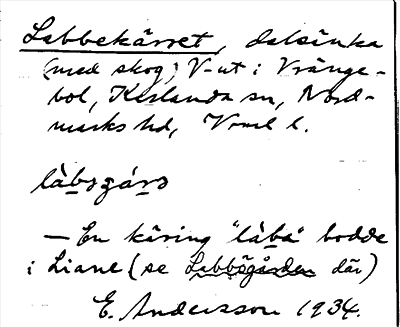 Labbekärret, dalsänka
(med skog) V-ut i Vränge-
bol, Karlanda sn, Nord-
marks hd, Vrml l.
— En käring "läba" bodde
i Liane (se Labbögården där)
E. Andersson 1934.